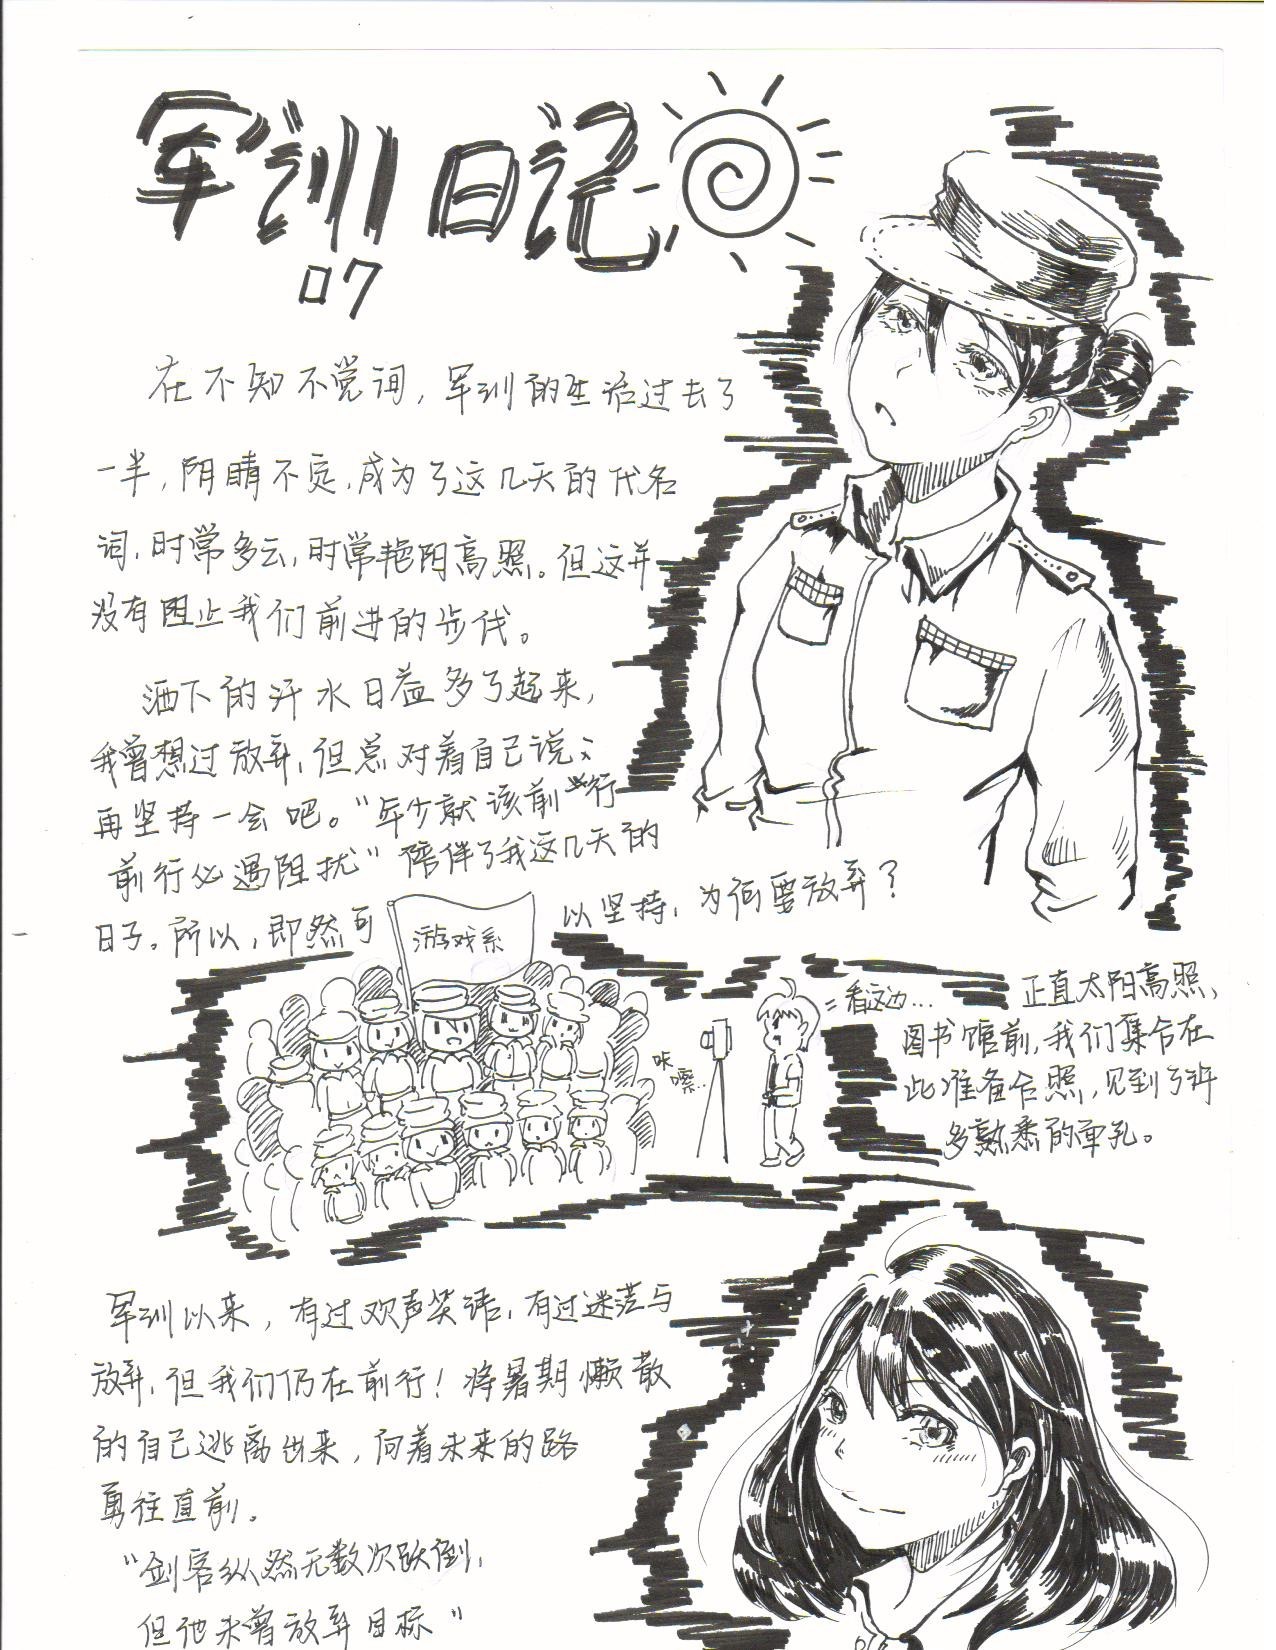 军训日记
07
在不知不觉间，军训的生活过去了
一半，阴晴不定，成为了这几天的代名
词，时常多云，时常艳阳高照。但这并
没有阻止我们前进的步伐。
洒下的汗水日益多了起来，
我曾想过放弃，但总对着自己说：
再坚持一会吧。“年少就该前行
前行必遇阻扰”陪伴了我这几天的
日子。所以，即然可以坚持，为何要放弃？
游戏系
咔嚓...
看这边...
正直太阳高照，
图书馆前，我们集合在
此准备合照，见到了许
多熟悉的面孔。
军训以来，有过欢声笑语，有过迷茫与
放弃，但我们仍在前行！将暑期懒散
的自己逃离出来，向着未来的路
勇往直前。
“剑客纵然无数次跌倒，
但他未曾放弃目标”